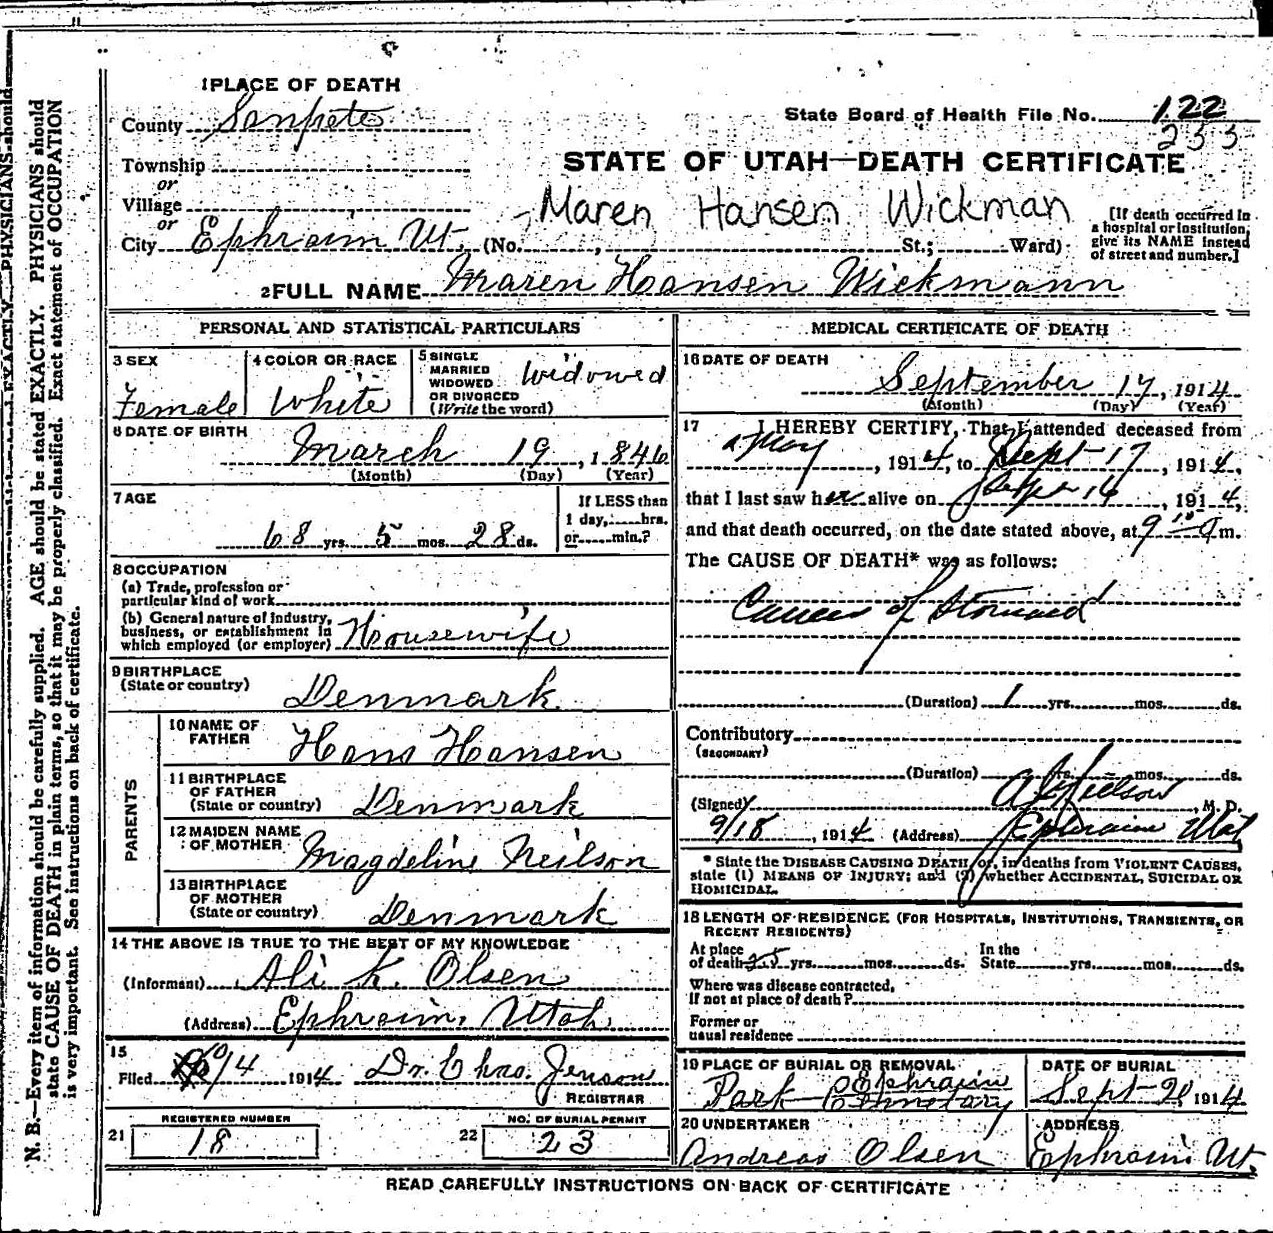 1 PLACE OF DEATH
County Sanpete
State Board of Health File No. 122
233
Township
or
STATE OF UTAH—DEATH CERTIFICATE
Village
or
Maren Hansen Wickman
City Ephraim Ut. (No. , St.; Ward)
[If death occurred in
a hospital or institution,
give its NAME instead
of street and number.]
2 FULL NAME Maren Hansen Wickmann
PERSONAL AND STATISTICAL PARTICULARS
3 SEX
Female
4 COLOR OR RACE
White
5 SINGLE
MARRIED
WIDOWED
OR DIVORCED
(Write the word)
Widowed
6 DATE OF BIRTH
March 19, 1846
(Month) (Day) (Year)
7 AGE
68 yrs. 5 mos. 28 ds.
If LESS than
1 day, hrs.
or min.?
8 OCCUPATION
(a) Trade, profession or
particular kind of work
(b) General nature of industry,
business, or establishment in
which employed (or employer) Housewife
9 BIRTHPLACE
(State or country)
Denmark
PARENTS
10 NAME OF
FATHER
Hans Hansen
11 BIRTHPLACE
OF FATHER
(State or country)
Denmark
12 MAIDEN NAME
OF MOTHER
Magdeline Neilson
13 BIRTHPLACE
OF MOTHER
(State or country)
Denmark
14 THE ABOVE IS TRUE TO THE BEST OF MY KNOWLEDGE
(Informant) K. Olsen
(Address) Ephraim, Utah
15
Filed 1914 Dr. Chas. Jenson
REGISTRAR
REGISTERED NUMBER
21 18
NO. OF BURIAL PERMIT
22 23
MEDICAL CERTIFICATE OF DEATH
16 DATE OF DEATH
September 17, 1914
(Month) (Day) (Year)
17 I HEREBY CERTIFY, That I attended deceased from
May, 1914, to Sept 17, 1914,
that I last saw her alive on Sept 16, 1914,
and that death occurred, on the date stated above, at 9 m.
The CAUSE OF DEATH* was as follows:
Cancer of Stomach
(Duration) 1 yrs. mos. ds.
Contributory
(SECONDARY)
(Duration) yrs. mos. ds.
(Signed) , M. D.
9/18, 1914 (Address) Ephraim Utah
* State the DISEASE CAUSING DEATH, or, in deaths from VIOLENT CAUSES,
state (1) MEANS OF INJURY; and (2) whether ACCIDENTAL, SUICIDAL OR
HOMICIDAL.
18 LENGTH OF RESIDENCE (FOR HOSPITALS, INSTITUTIONS, TRANSIENTS, OR
RECENT RESIDENTS)
At place
of death yrs. mos. ds.
In the
State yrs. mos. ds.
Where was disease contracted,
if not at place of death?
Former or
usual residence
19 PLACE OF BURIAL OR REMOVAL
Ephraim
Park Cemetary
DATE OF BURIAL
Sept 20, 1914
20 UNDERTAKER
Andreas Olsen
ADDRESS
Ephraim Ut.
READ CAREFULLY INSTRUCTIONS ON BACK OF CERTIFICATE
EXACTLY PHYSICIANS should
N. B.—Every item of information should be carefully supplied. AGE should be stated EXACTLY. PHYSICIANS should
state CAUSE OF DEATH in plain terms, so that it may be properly classified. Exact statement of OCCUPATION
is very important. See instructions on back of certificate.